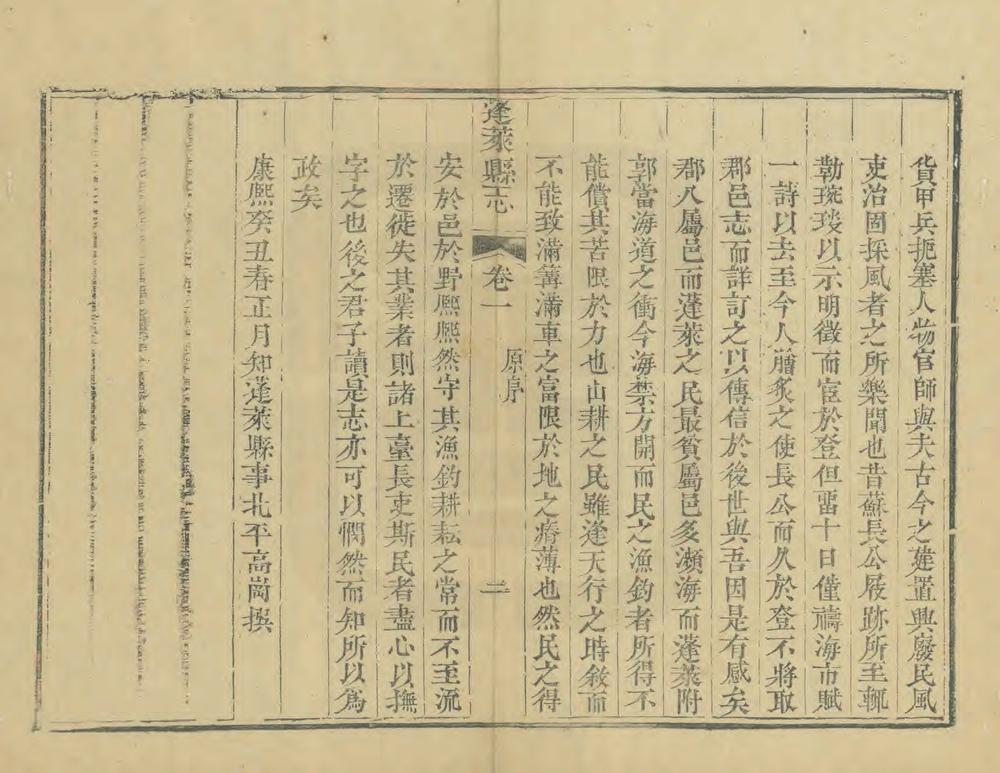 貨甲兵扼塞人物官師與夫古今之建置興廢民風
吏治固採風者之所樂聞也昔蘇長公屐跡所至輒
勒琬琰以示明徵而宦於登但畱十日僅禱海市賦
一詩以去至今人膾炙之使長公而久於登不將取
郡邑志而詳訂之以傳信於後世與吾因是有感矣
郡八屬邑而蓬萊之民最貧屬邑多瀕海而蓬萊附
郭當海道之衝今海禁方開而民之漁釣者所得不
能償其苦限於力也山耕之民雖逢天行之時敘而
不能致滿篝滿車之富限於地之瘠薄也然民之得
蓬萊縣志
卷一
原序
二
安於邑於野熙熙然守其漁釣耕耘之常而不至流
於遷徙失其業者則諸上臺長吏斯民者盡心以撫
字之也後之君子讀是志亦可以憫然而知所以為
政矣
康熙癸丑春正月知蓬萊縣事北平高崗撰